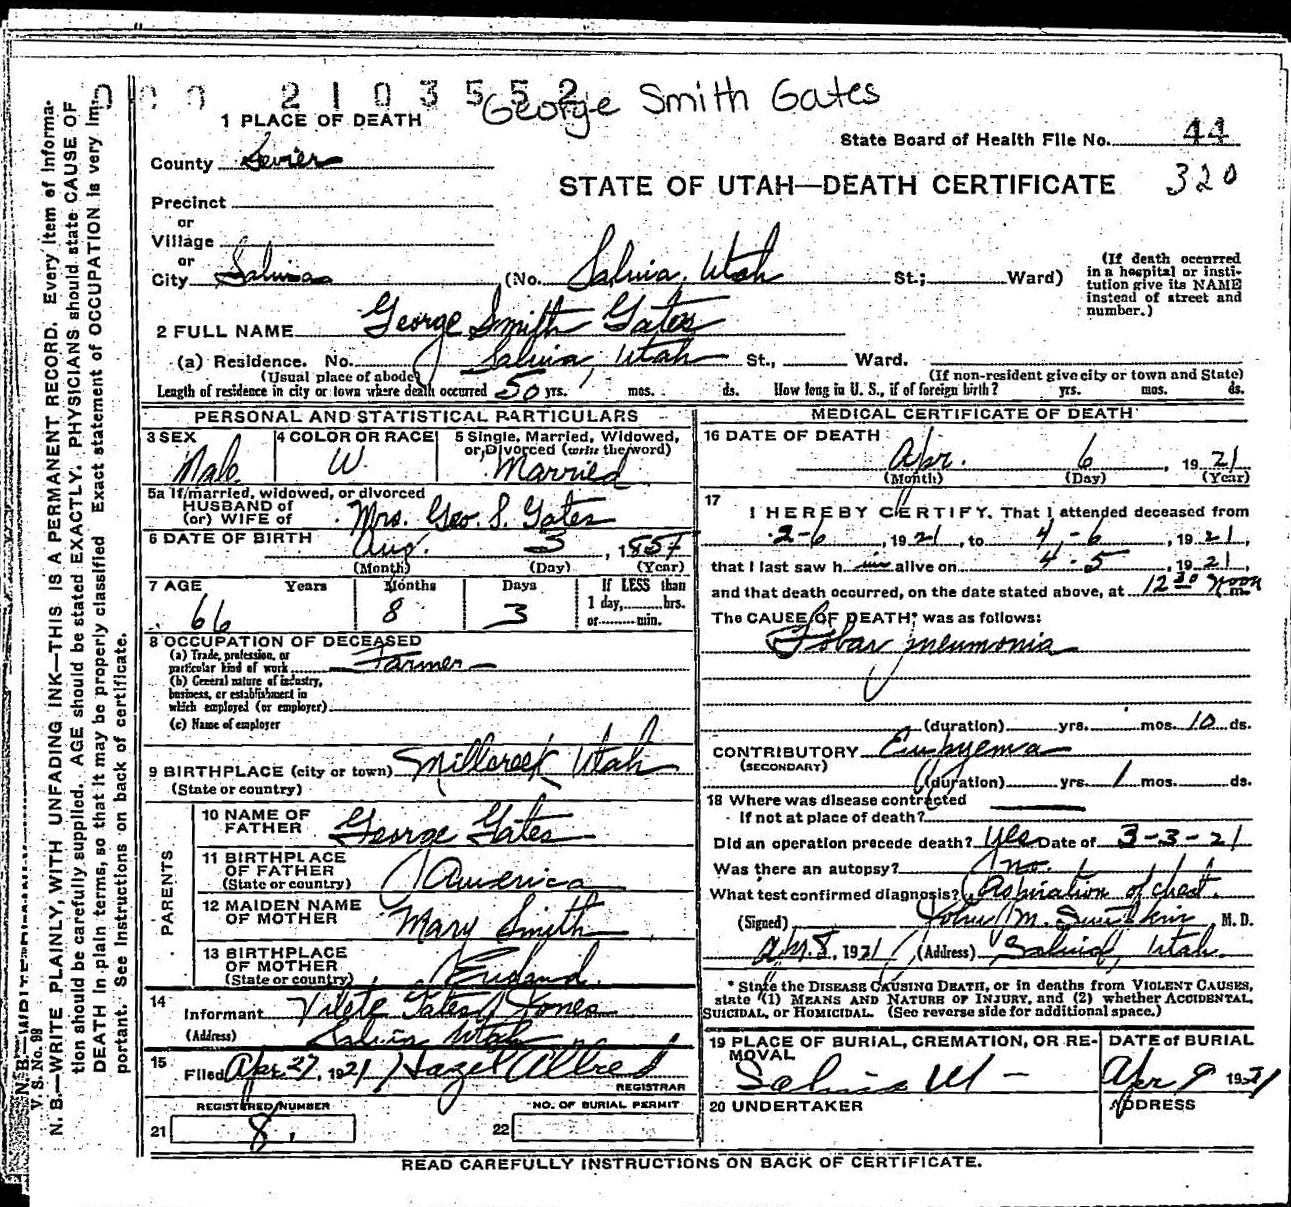 0 0 0 2 1 0 3 5 5 2
George Smith Gates
1 PLACE OF DEATH
State Board of Health File No. 44
320
County Sevier
STATE OF UTAH—DEATH CERTIFICATE
Precinct
or
Village
or
City Salina (No. Salina, Utah St.; Ward)
(If death occurred in a hospital or insti-
tution give its NAME
instead of street and
number.)
2 FULL NAME George Smith Gates
(a) Residence. No. Salina, Utah St., Ward.
(Usual place of abode) (If non-resident give city or town and State)
Length of residence in city or town where death occurred 50 yrs. mos. ds. How long in U. S., if of foreign birth? yrs. mos. ds.
PERSONAL AND STATISTICAL PARTICULARS
3 SEX Male
4 COLOR OR RACE W.
5 Single, Married, Widowed,
or Divorced (write the word)
Married
5a If married, widowed, or divorced
HUSBAND of
(or) WIFE of Mrs. Geo. S. Gates
6 DATE OF BIRTH Aug. 3, 185
(Month) (Day) (Year)
7 AGE Years Months Days If LESS than
66 8 3 1 day, hrs.
or min.
8 OCCUPATION OF DECEASED
(a) Trade, profession, or
particular kind of work Farmer
(b) General nature of industry,
business, or establishment in
which employed (or employer)
(c) Name of employer
9 BIRTHPLACE (city or town) Millcreek, Utah
(State or country)
PARENTS
10 NAME OF
FATHER George Gates
11 BIRTHPLACE
OF FATHER
(State or country) America
12 MAIDEN NAME
OF MOTHER Mary Smith
13 BIRTHPLACE
OF MOTHER
(State or country) England
14
Informant Gates Jones
(Address) Salina Utah
15 Filed Apr. 27, 1921 Hazel Allred
REGISTRAR
REGISTERED NUMBER NO. OF BURIAL PERMIT
21 8 22
MEDICAL CERTIFICATE OF DEATH
16 DATE OF DEATH
Apr. 6, 1921
(Month) (Day) (Year)
17
I HEREBY CERTIFY, That I attended deceased from
2-6, 1921, to 4-6, 1921,
that I last saw him alive on 4-5, 1921,
and that death occurred, on the date stated above, at 12 30 noon m.
The CAUSE OF DEATH* was as follows:
Lobar pneumonia
(duration) yrs. mos. 10 ds.
CONTRIBUTORY Empyema
(SECONDARY)
(duration) yrs. 1 mos. ds.
18 Where was disease contracted
If not at place of death?
Did an operation precede death? Yes Date of 3-3-21
Was there an autopsy? no.
What test confirmed diagnosis? Aspiration of chest.
(Signed) John M. M. D.
Apr. 8, 1921 (Address) Salina, Utah.
* State the DISEASE CAUSING DEATH, or in deaths from VIOLENT CAUSES,
state (1) MEANS AND NATURE OF INJURY, and (2) whether ACCIDENTAL,
SUICIDAL, or HOMICIDAL. (See reverse side for additional space.)
19 PLACE OF BURIAL, CREMATION, OR RE-
MOVAL
Salina Ut
DATE of BURIAL
Apr 9 1921
20 UNDERTAKER
ADDRESS
READ CAREFULLY INSTRUCTIONS ON BACK OF CERTIFICATE.
V. S. No. 98
N. B.—WRITE PLAINLY, WITH UNFADING INK—THIS IS A PERMANENT RECORD. Every item of informa-
tion should be carefully supplied. AGE should be stated EXACTLY. PHYSICIANS should state CAUSE OF
DEATH in plain terms, so that it may be properly classified. Exact statement of OCCUPATION is very im-
portant. See Instructions on back of certificate.